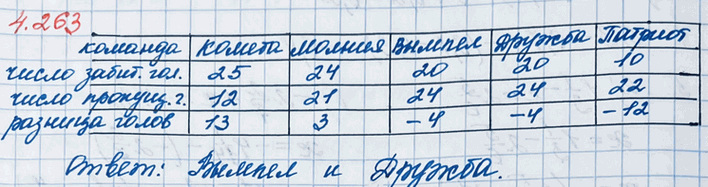 4.263
команда Комета Молния Вымпел Дружба Патриот
число забит. гол. 25 24 20 20 10
число пропущ. г. 12 21 24 24 22
разница голов 13 3 -4 -4 -12
Ответ: Вымпел и Дружба.